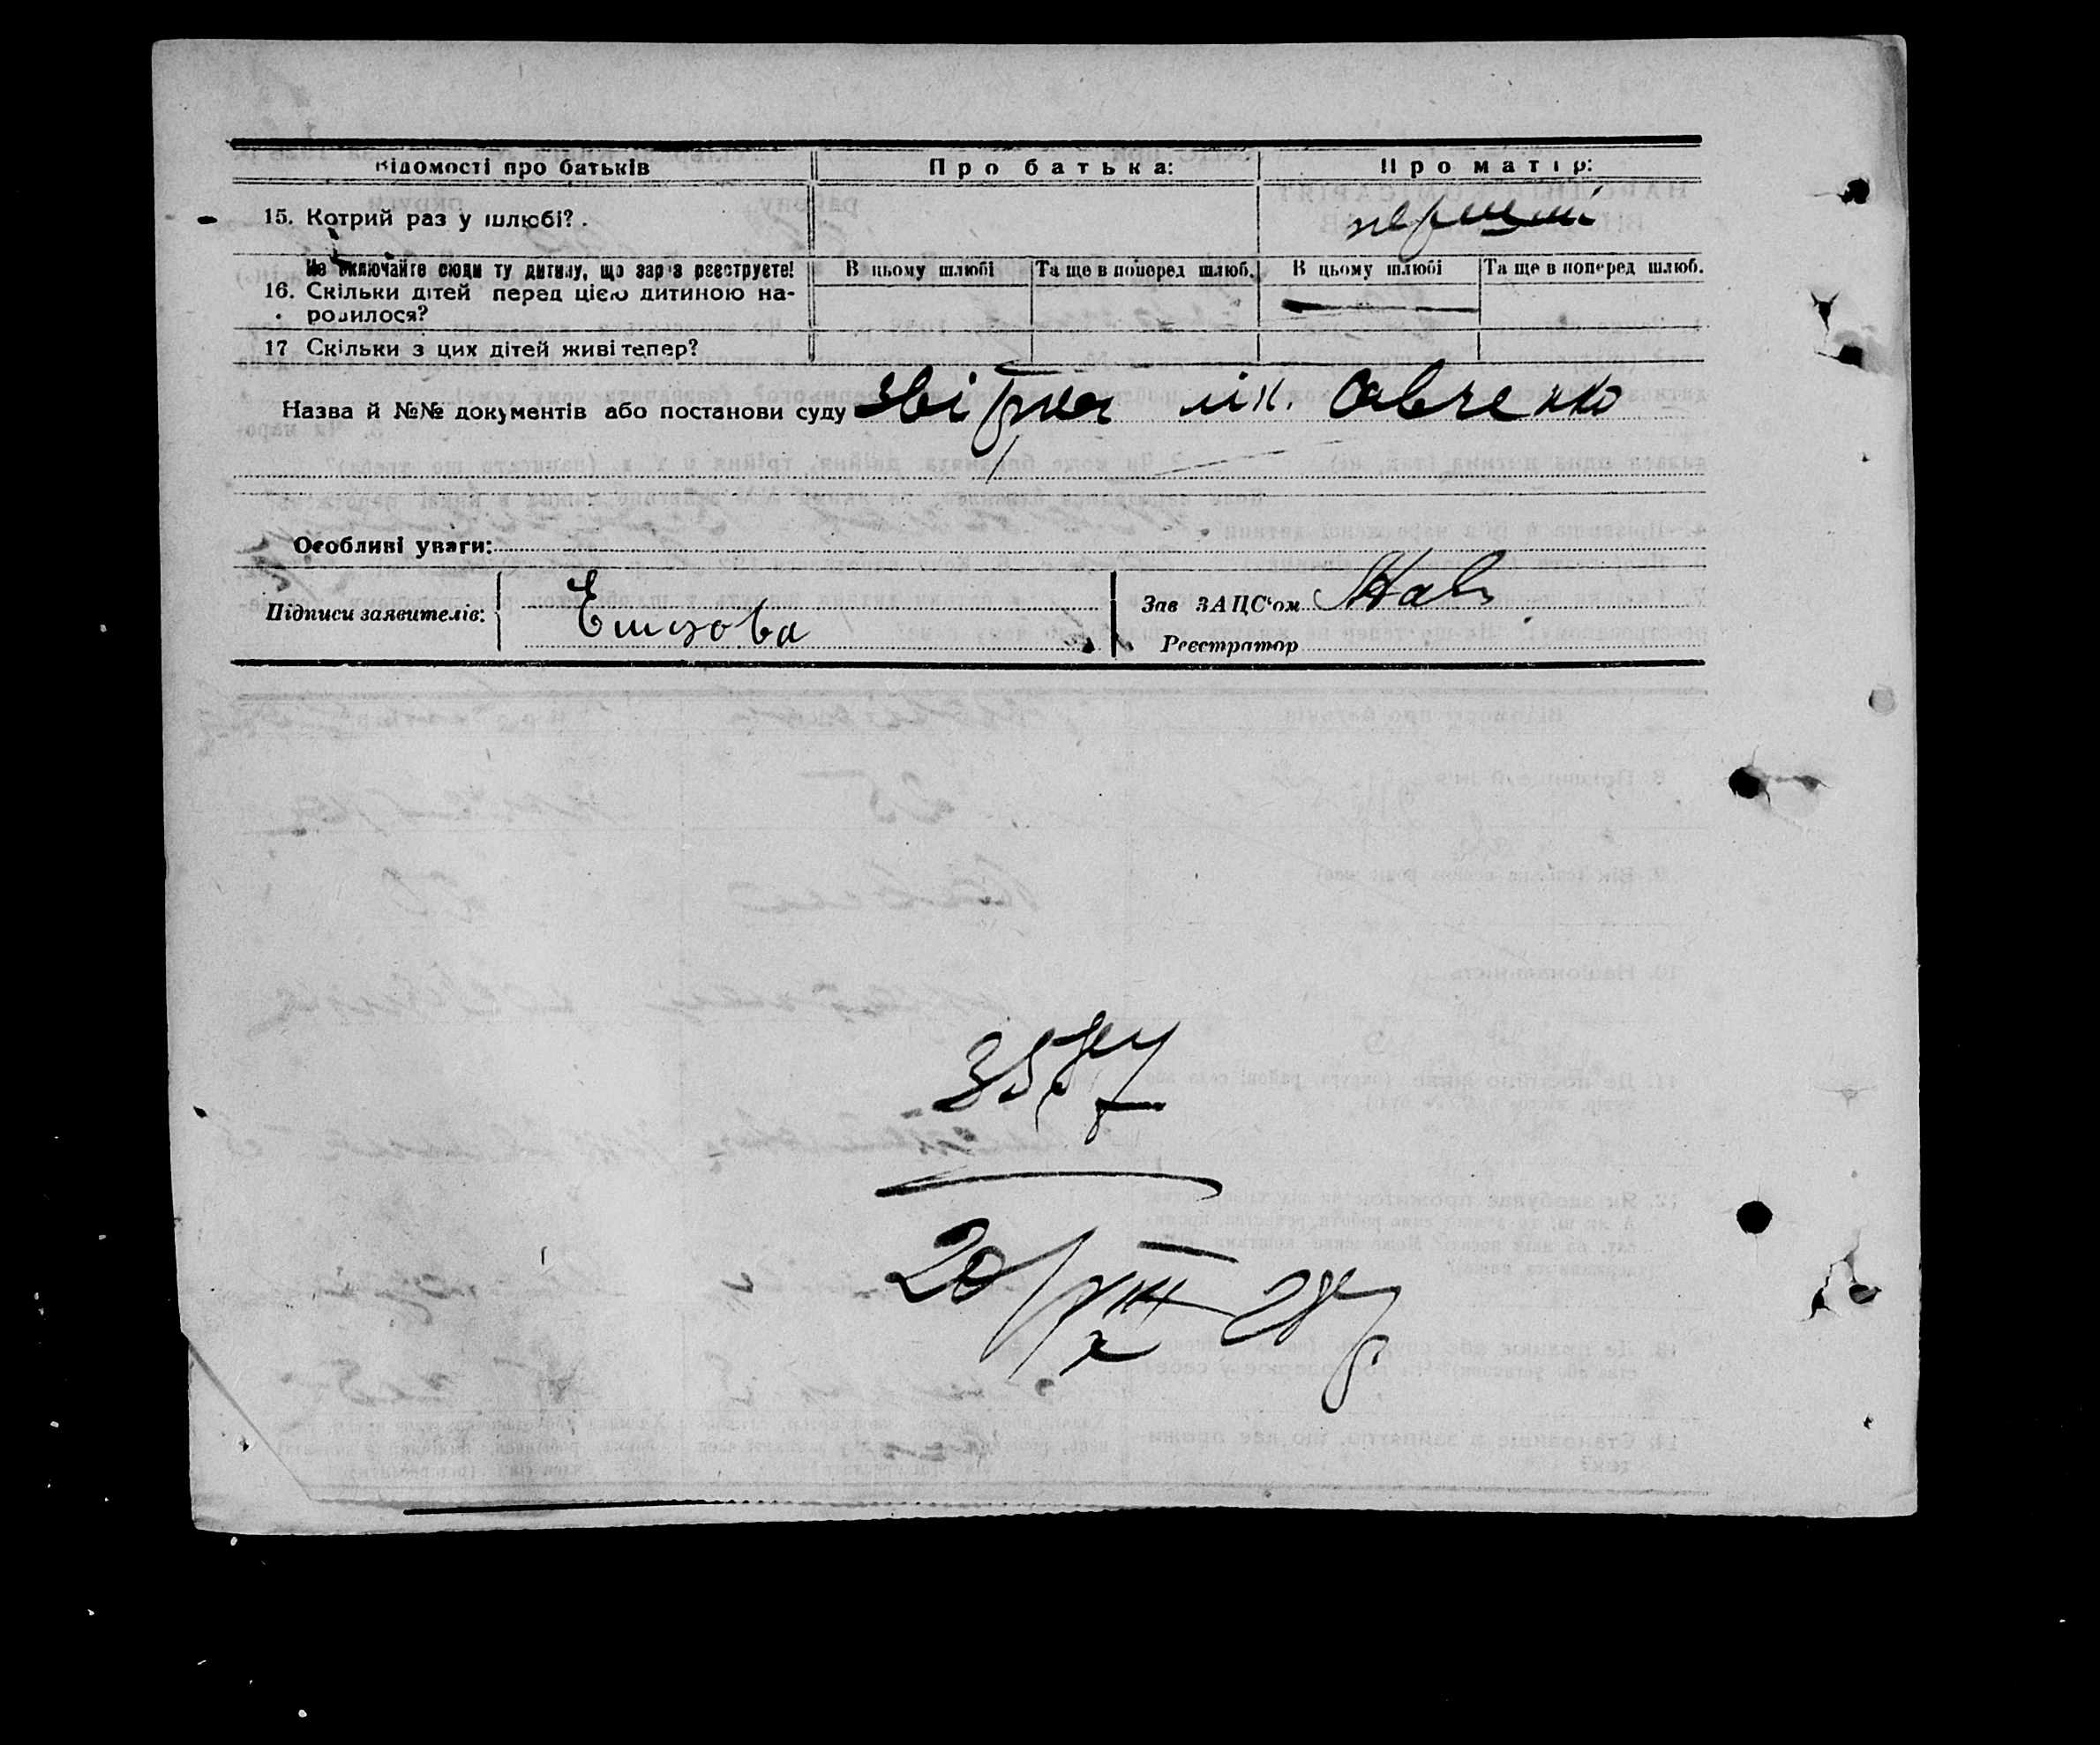 Відомості про батьків Про батька: Про матір:
15. Котрий раз у шлюбі? . перший
Не включайте сюди ту дитину, що зараз реєструєте! В цьому шлюбі Та ще в поперед шлюб. В цьому шлюбі Та ще в поперед шлюб.
16. Скільки дітей перед цією дитиною на-
родилося? —
17 Скільки з цих дітей живі тепер?
Назва й №№ документів або постанови суду лік. Савченко
Особливі уваги:
Підписи заявителів: Зав ЗАЦС'ом
Реєстратор
20/VIII 28 р